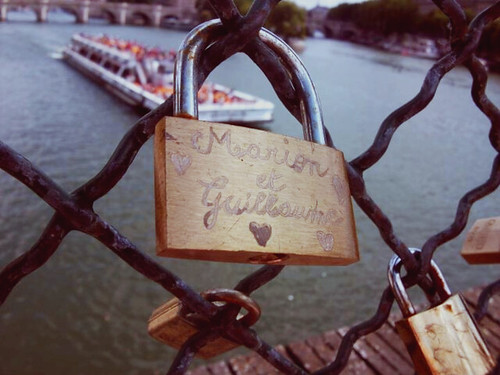 Marion
et
Guillaume